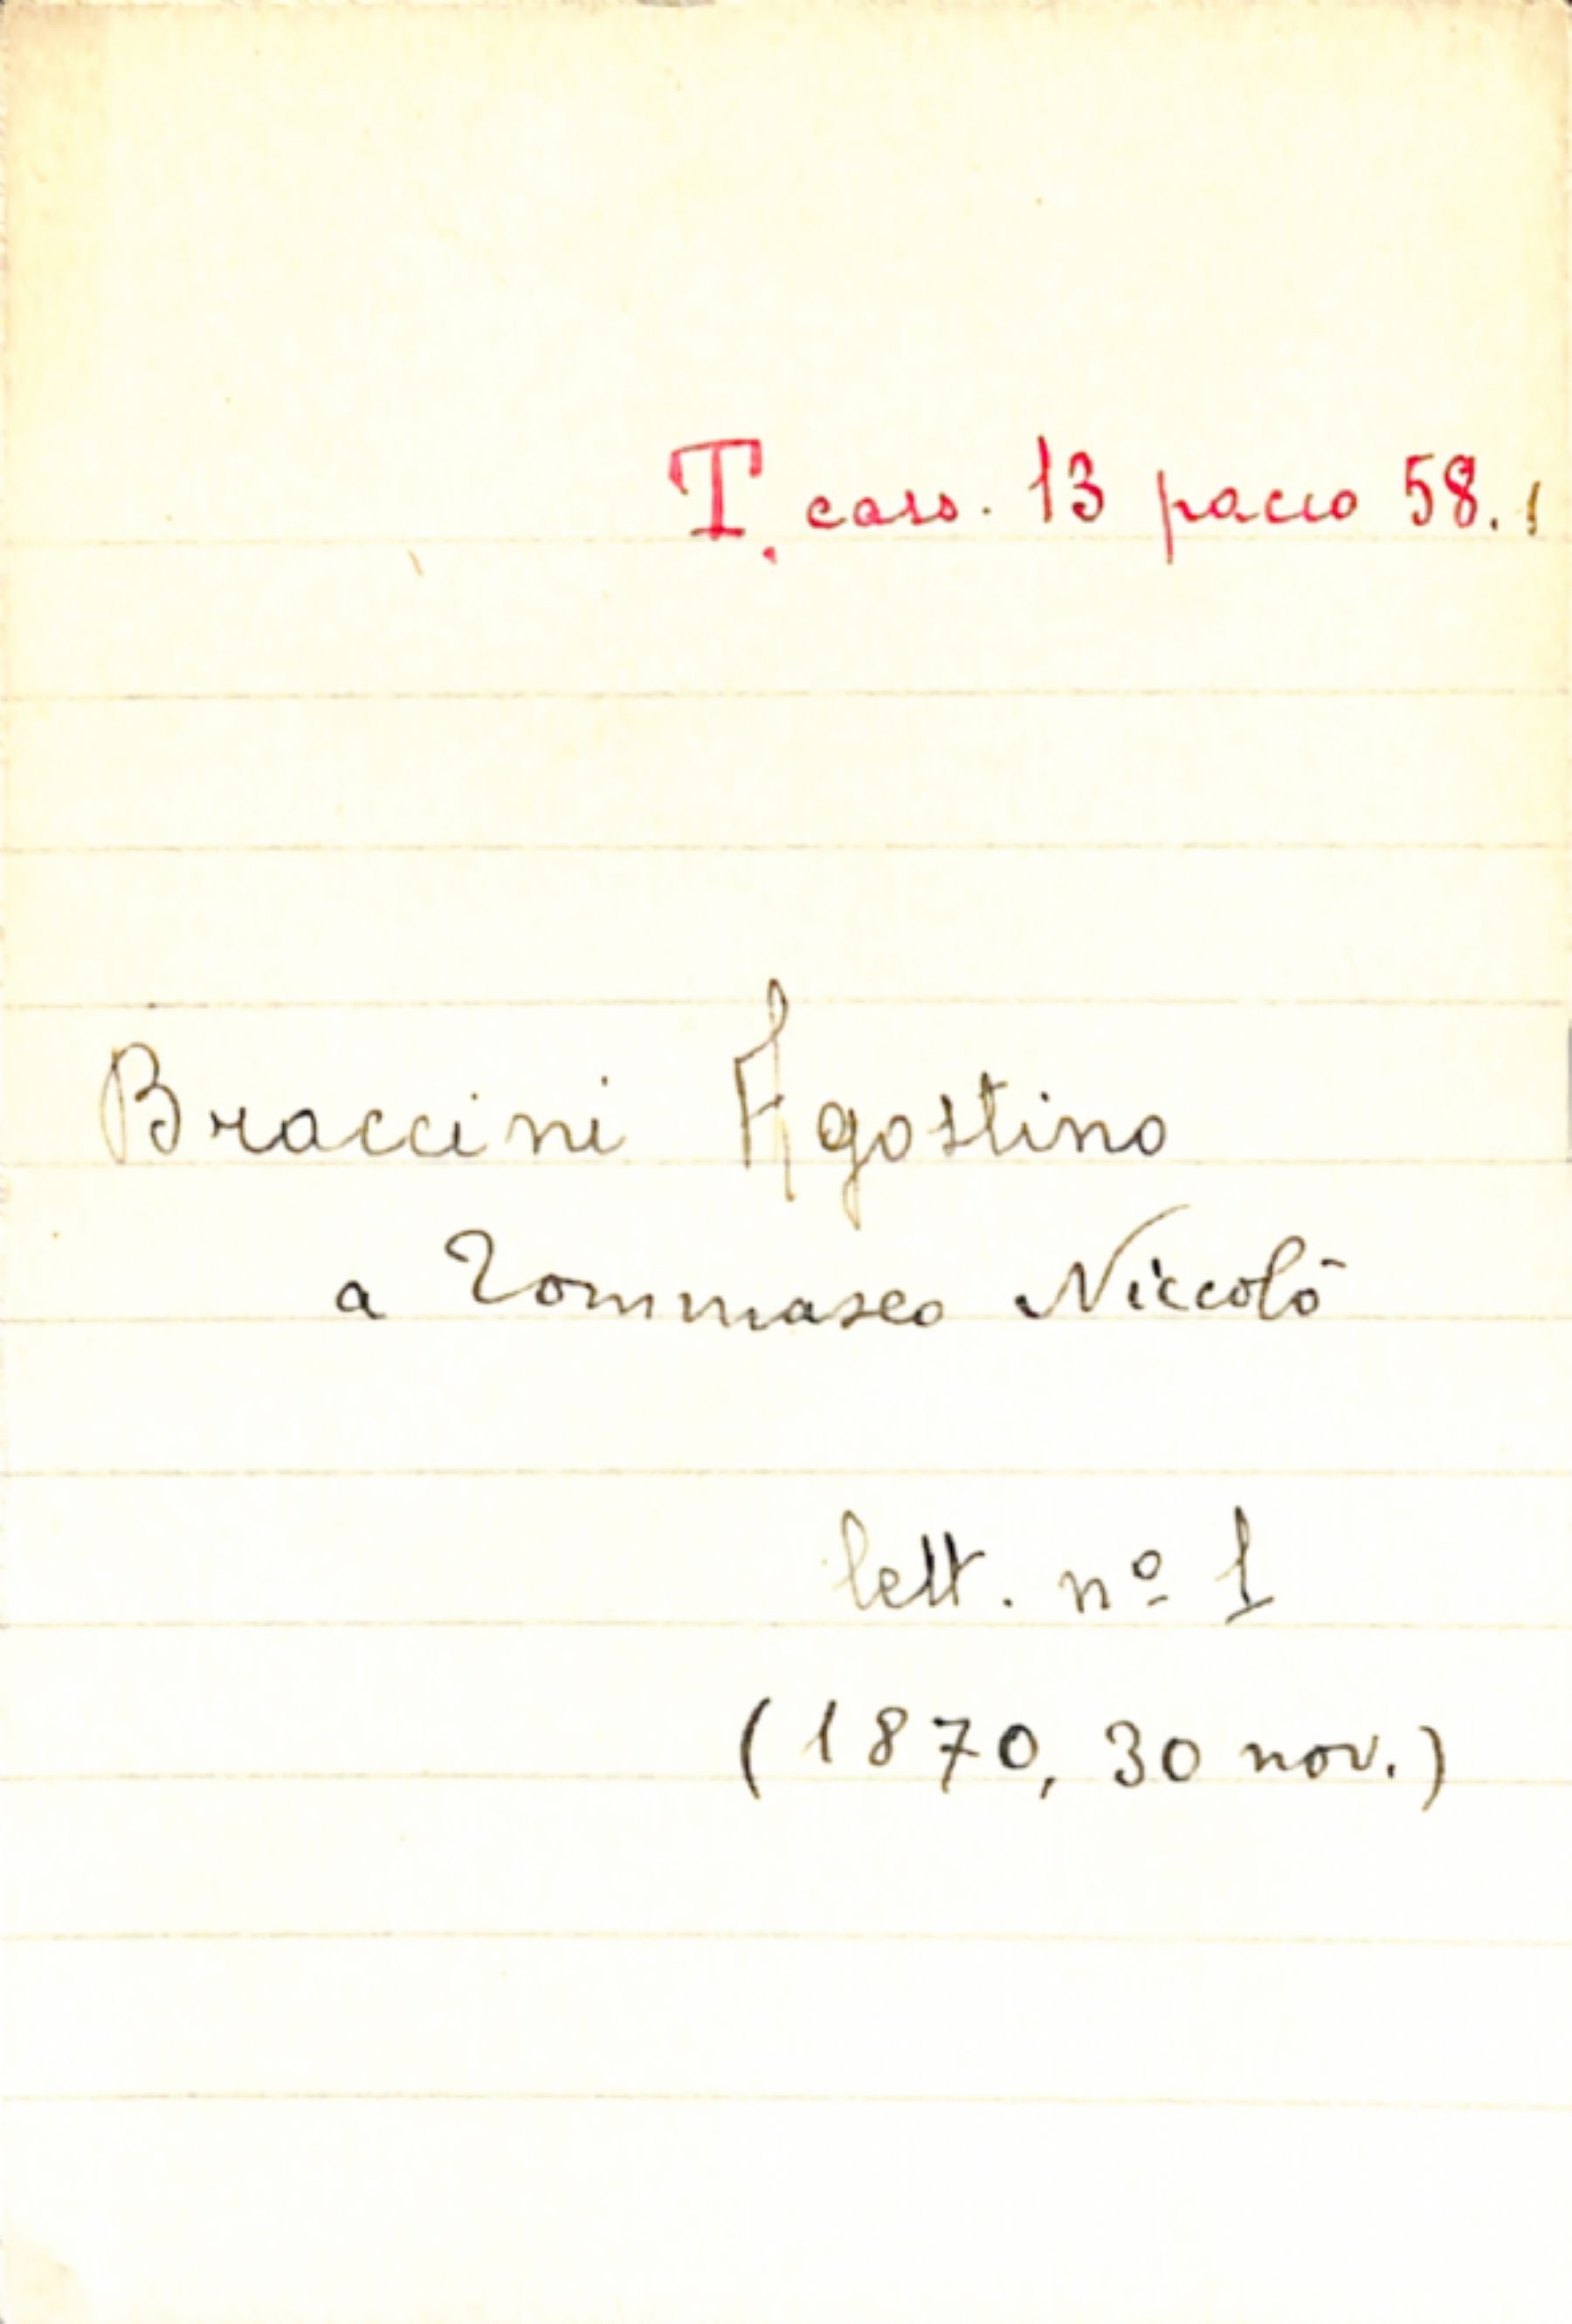 T. cass. 13 pacco 58.1
Braccini Agostino
a Tommaseo Niccolò
lett. nº 1
(1870, 30 nov.)